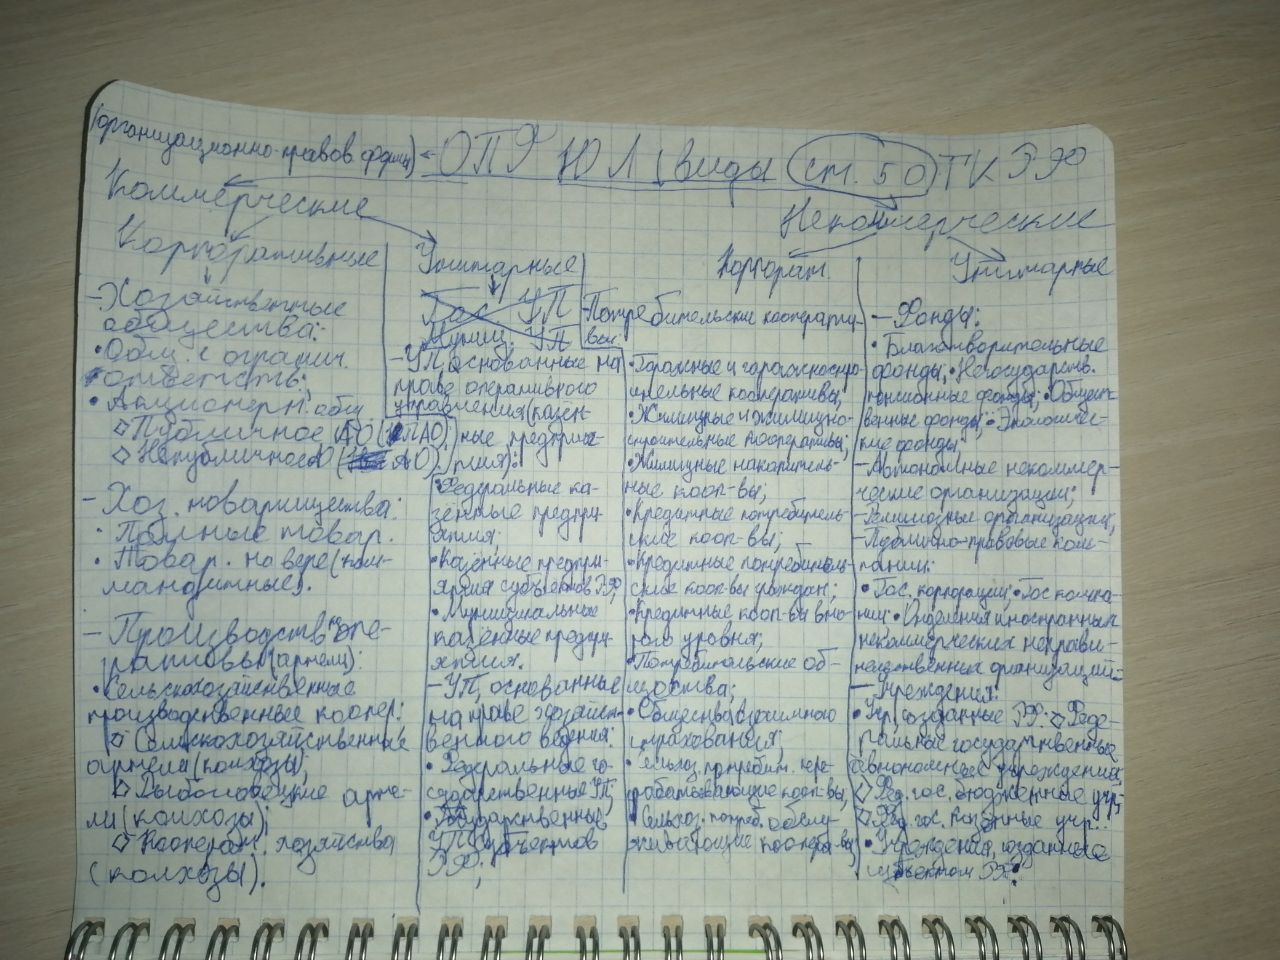 (организационно-правов. формы) ← ОПФ ЮЛ (виды ст. 50 ГК РФ
Коммерческие
Некоммерческие
Корпоративные
- Хозяйственные
общества:
• Общ. с огранич.
ответств.;
• Акционерн. общ.
◇ Публичное АО (ПАО);
◇ Непубличное АО (АО).
- Хоз. товарищества:
• Полные товар.
• Товар. на вере (ком-
мандитные).
- Производств. коопе-
ративы (артели):
• Сельскохозяйственные
производственные коопер.:
◇ Сельскохозяйственные
артели (колхозы);
◇ Рыболовецкие арте-
ли (колхозы);
◇ Кооперат. хозяйства
(колхозы).
Унитарные
Гос УП
Муниц. УП
- УП, основанные на
праве оперативного
управления (казён-
ные предпри-
ятия):
• Федеральные ка-
зённые предпри-
ятия;
• Казённые предпри-
ятия субъектов РФ;
• Муниципальные
казённые предпри-
ятия.
- УП, основанные
на праве хозяйст-
венного ведения:
• Федеральные го-
сударственные УП;
• Государственные
УП субъектов
РФ;
Корпорат.
- Потребительские кооперати-
вы:
• Гаражные и гаражно-строи-
тельные кооперативы;
• Жилищные и жилищно-
строительные кооперативы;
• Жилищные накопитель-
ные кооп-вы;
• Кредитные потребитель-
ские кооп-вы;
• Кредитные потребитель-
ские кооп-вы граждан;
• Кредитные кооп-вы вто-
рого уровня;
• Потребительские об-
щества;
• Общества взаимного
страхования;
• Сельхоз. потребит. пере-
рабатывающие кооп-вы;
• Сельхоз. потреб. обслу-
живающие кооперa-вы;
Унитарные
- Фонды:
• Благотворительные
фонды; • Негосударств.
пенсионные фонды; • Общест-
венные фонды; • Экологичес-
кие фонды;
- Автономные некоммер-
ческие организации;
- Религиозные организации;
- Публично-правовые ком-
пании:
• Гос. корпорации; • Гос компа-
нии • Отделения иностранных
некоммерческих неправи-
тельственных организаций:
- Учреждения:
• Учр., созданные РФ: ◇ Феде-
ральные государственные
автономные учреждения
◇ Фед. гос. бюджетные учр.
◇ Фед. гос. казённые учр.
• Учреждения, созданные
субъектом РФ: